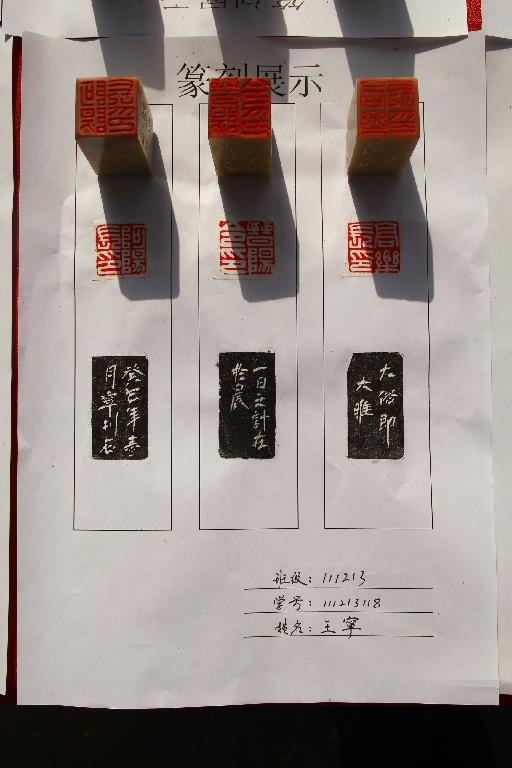 篆刻展示
阿陽
長印
高樂
長印
癸巳年春
月寧刊石
一日之計在
於晨
大俗即
大雅
班级：111213
学号：111213118
姓名：王寧